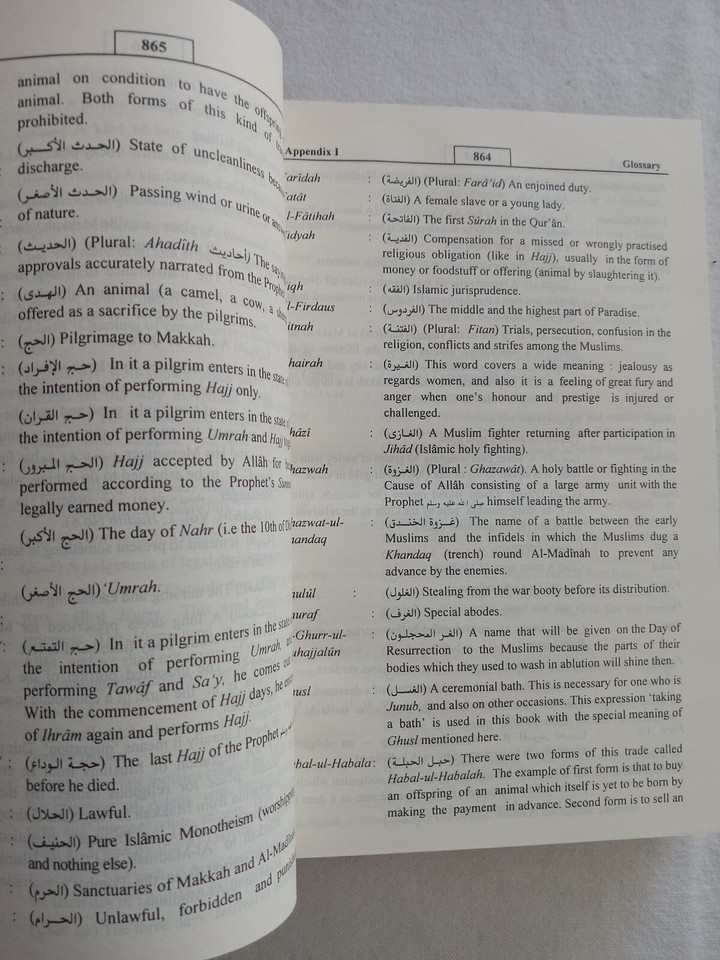 Appendix I 864 Glossary
arîdah : (الفريضة) (Plural: Farâ'id) An enjoined duty.
atât : (الفتاة) A female slave or a young lady.
l-Fâtihah : (الفاتحة) The first Sûrah in the Qur'ân.
idyah : (الفدية) Compensation for a missed or wrongly practised
religious obligation (like in Hajj), usually in the form of
money or foodstuff or offering (animal by slaughtering it).
iqh : (الفقه) Islamic jurisprudence.
l-Firdaus : (الفردوس) The middle and the highest part of Paradise.
itnah : (الفتنة) (Plural: Fitan) Trials, persecution, confusion in the
religion, conflicts and strifes among the Muslims.
hairah : (الغيرة) This word covers a wide meaning : jealousy as
regards women, and also it is a feeling of great fury and
anger when one's honour and prestige is injured or
challenged.
hâzî : (الغازى) A Muslim fighter returning after participation in
Jihâd (Islâmic holy fighting).
hazwah : (الغزوة) (Plural : Ghazawât). A holy battle or fighting in the
Cause of Allâh consisting of a large army unit with the
Prophet صلى الله عليه وسلم himself leading the army.
hazwat-ul- : (غزوة الخندق) The name of a battle between the early
handaq Muslims and the infidels in which the Muslims dug a
Khandaq (trench) round Al-Madînah to prevent any
advance by the enemies.
ulûl : (الغلول) Stealing from the war booty before its distribution.
uraf : (الغرف) Special abodes.
-Ghurr-ul- : (الغر المحجلون) A name that will be given on the Day of
hajjalûn Resurrection to the Muslims because the parts of their
bodies which they used to wash in ablution will shine then.
usl : (الغسل) A ceremonial bath. This is necessary for one who is
Junub, and also on other occasions. This expression 'taking
a bath' is used in this book with the special meaning of
Ghusl mentioned here.
bal-ul-Habala : (حبل الحبلة) There were two forms of this trade called
Habal-ul-Habalah. The example of first form is that to buy
an offspring of an animal which itself is yet to be born by
making the payment in advance. Second form is to sell an
865
animal on condition to have the offspring
animal. Both forms of this kind of
prohibited.
(الحدث الأكبر) State of uncleanliness
discharge.
(الحدث الأصغر) Passing wind or urine or
of nature.
(الحديث) (Plural: Ahadîth أحاديث) The
approvals accurately narrated from the Prophet
: (الهدى) An animal (a camel, a cow, a
offered as a sacrifice by the pilgrims.
: (الحج) Pilgrimage to Makkah.
: (حج الإفراد) In it a pilgrim enters in the state
the intention of performing Hajj only.
(حج القران) In it a pilgrim enters in the state
the intention of performing Umrah and Hajj
: (الحج المبرور) Hajj accepted by Allâh for
performed according to the Prophet's
legally earned money.
(الحج الأكبر) The day of Nahr (i.e the 10th of
:
(الحج الأصغر) 'Umrah.
:
: (حج التمتع) In it a pilgrim enters in the state
the intention of performing Umrah,
performing Tawâf and Sa'y, he comes
With the commencement of Hajj days, he
of Ihrâm again and performs Hajj.
: (حجة الوداع) The last Hajj of the Prophet
before he died.
: (الحلال) Lawful.
: (الحنيف) Pure Islâmic Monotheism
and nothing else).
: (الحرم) Sanctuaries of Makkah and
: (الحرام) Unlawful, forbidden and